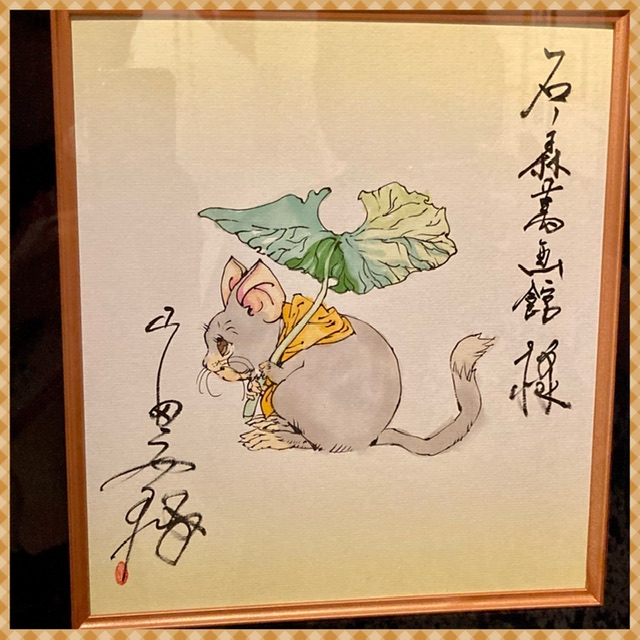 石ノ森萬画館様
山田章博